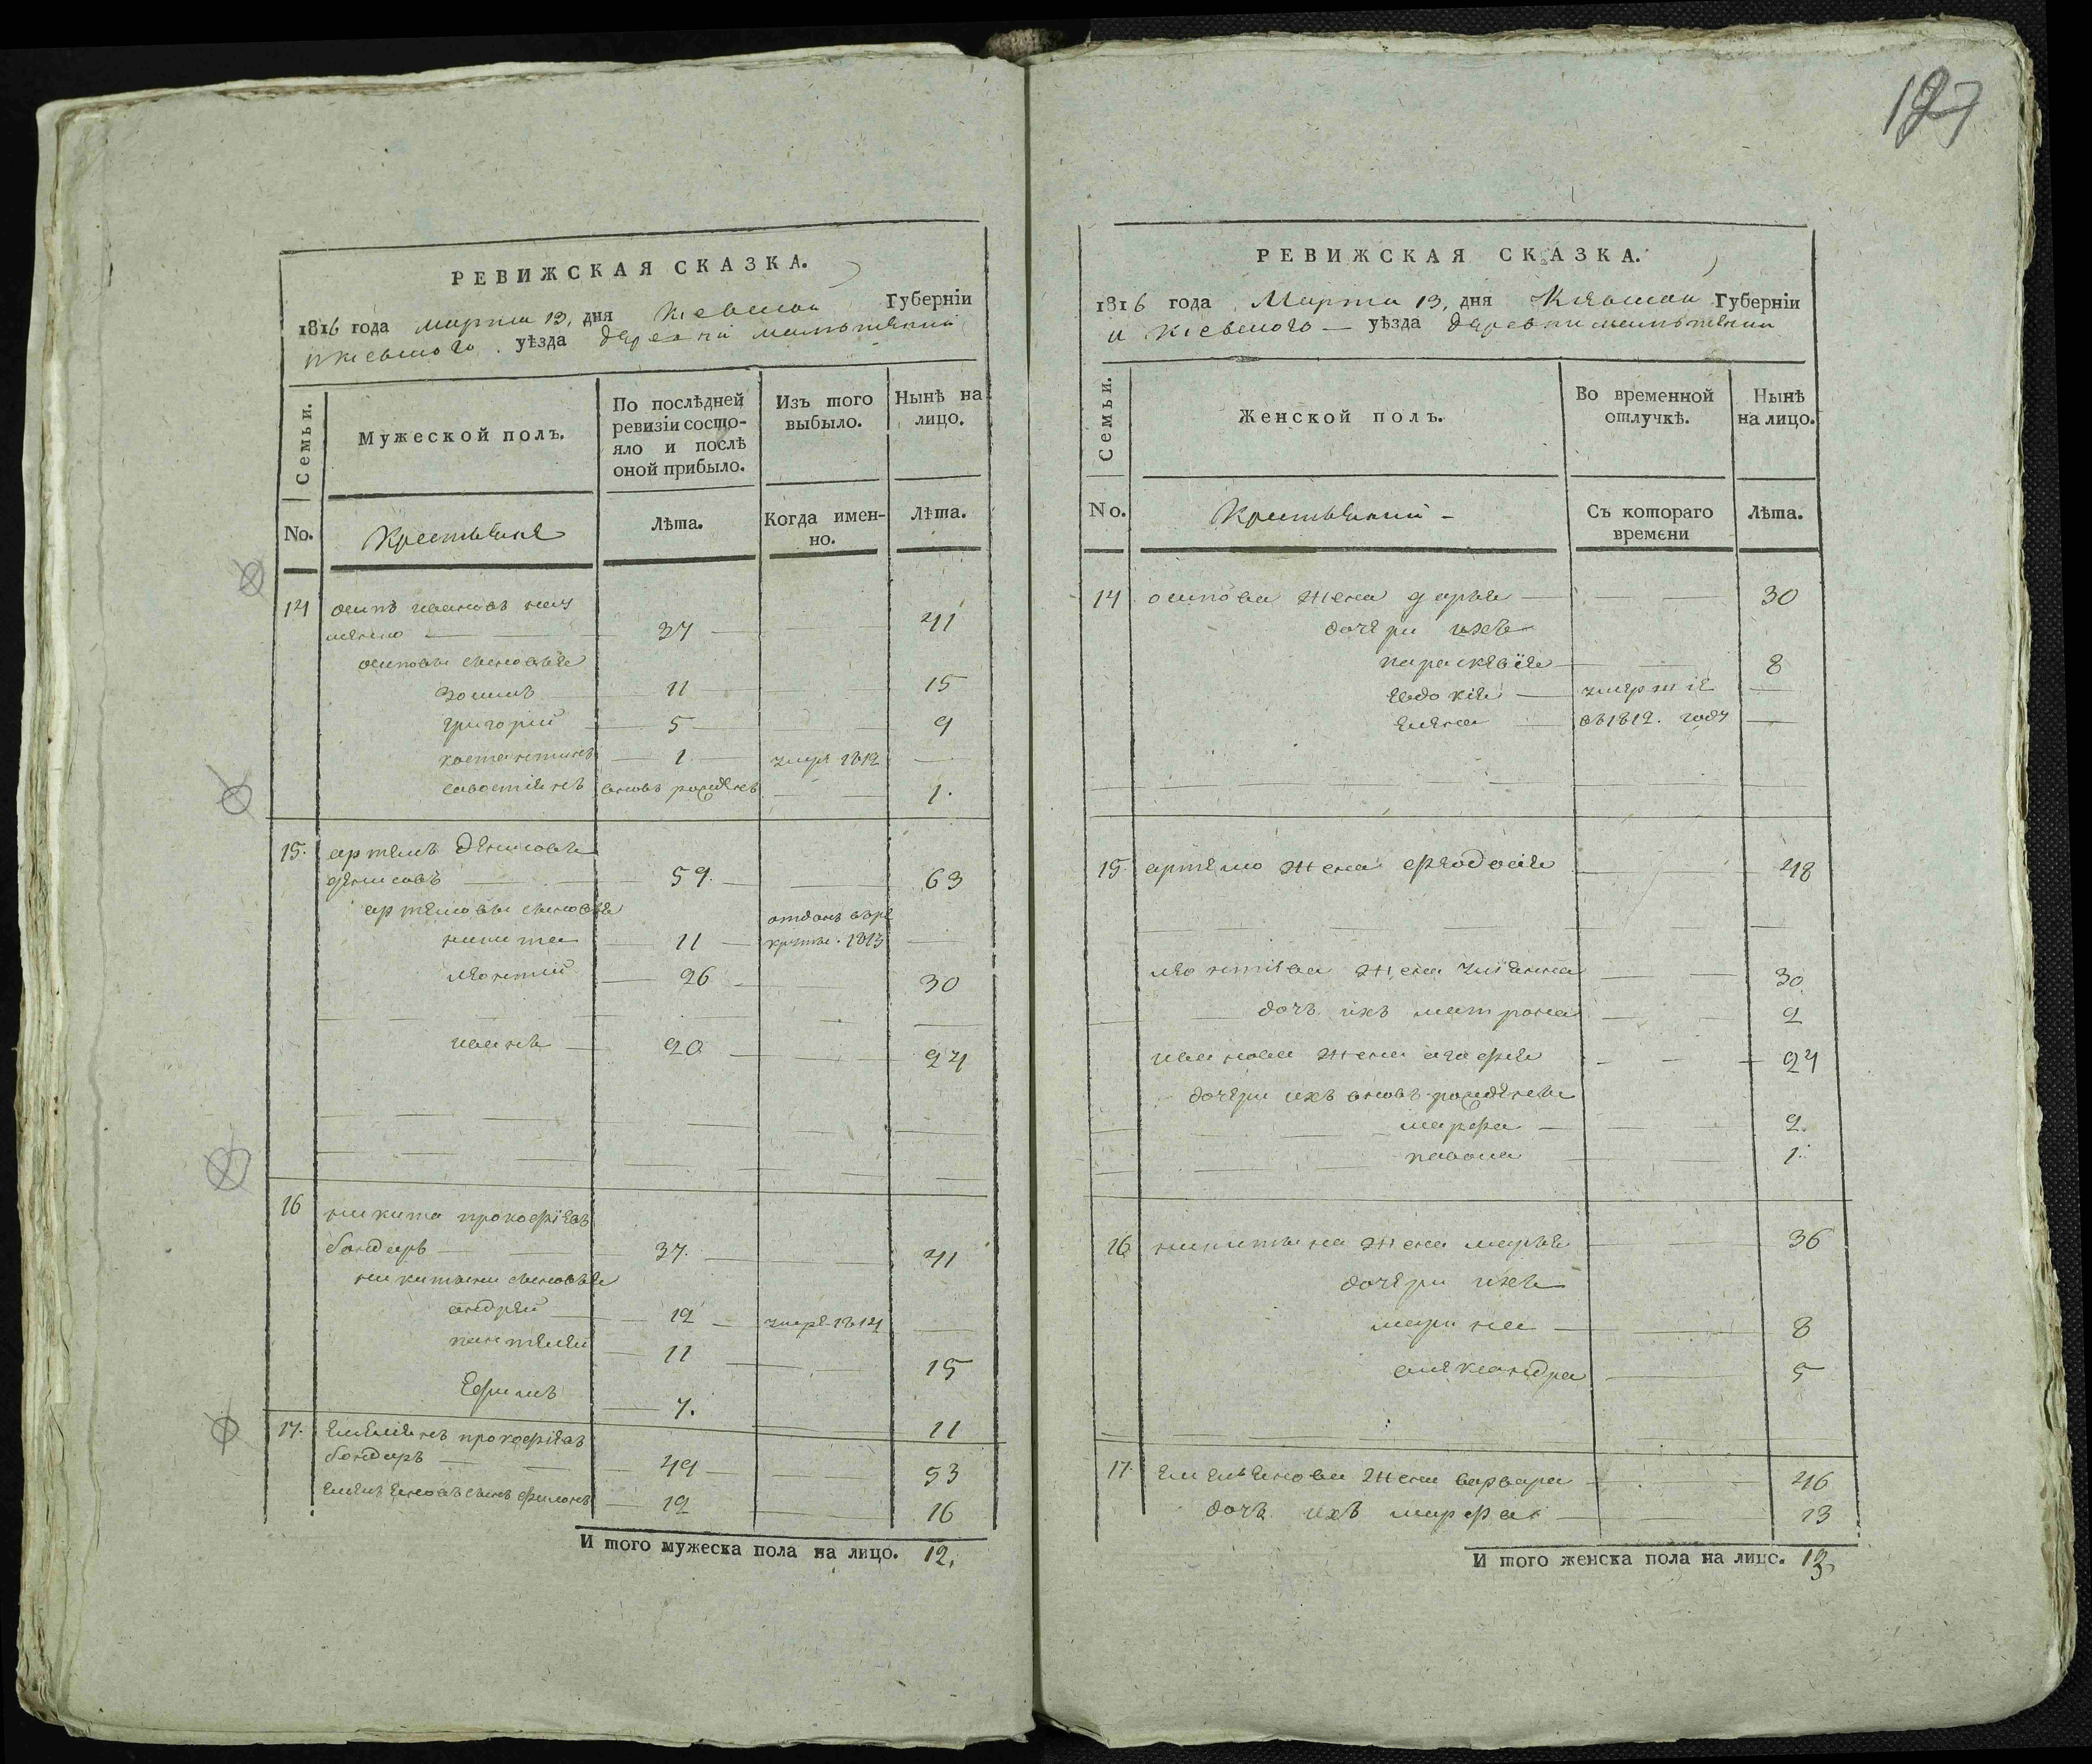 127
РЕВИЖСКАЯ СКАЗКА.
1816 года марта 13, дня Киевской Губерніи
и киевского уѣзда деревни
Семьи.
Мужеской полъ.
По послѣдней ревизіи состояло и послѣ оной прибыло.
Изъ того выбыло.
Нынѣ на лицо.
No.
Крестьяне
Лѣта.
Когда именно.
Лѣта.
14 осипъ ивановъ
37 41
осиповы сыновья
11 15
григорий 5 9
костантинъ 1 умре 1812
савостіянъ вновь рожденъ 1.
15. артемъ денисовъ
денисовъ 59. 63
артемовы сыновья отданъ врѣ
никита 11 круты. 1813
леонтий 26 30
иванъ 20 24
16 никита прокофіевъ
бондаръ 37. 41
никитины сыновья
андрей 12 умре 1814
пантелей 11 15
Ефимъ 7. 11
17. емеліянъ прокофіевъ
бондаръ 49 53
емельяновъ сынъ филонъ 12 16
И того мужеска пола на лицо. 12.
РЕВИЖСКАЯ СКАЗКА.
1816 года Марта 13, дня Киевской Губерніи
и Киевского уѣзда деревни
Семьи.
Женской полъ.
Во временной отлучкѣ.
Нынѣ на лицо.
No.
Крестьянки
Съ котораго времени
Лѣта.
14 осипова жена дарья 30
дочери ихъ
параскевія 8
евдокія умерті
елена въ 1812. году
15. артемо жена феодосія 48
леонтіева жена уліянна 30
дочь ихъ матрона 2
иванова жена агафія 24
дочери ихъ вновь рожденые
марфа 2.
1.
16 никитина жена марья 36
дочери ихъ
марина 8
александра 5
17. емельянова жена варвара 46
дочь ихъ марфа 13
И того женска пола на лицо. 13.